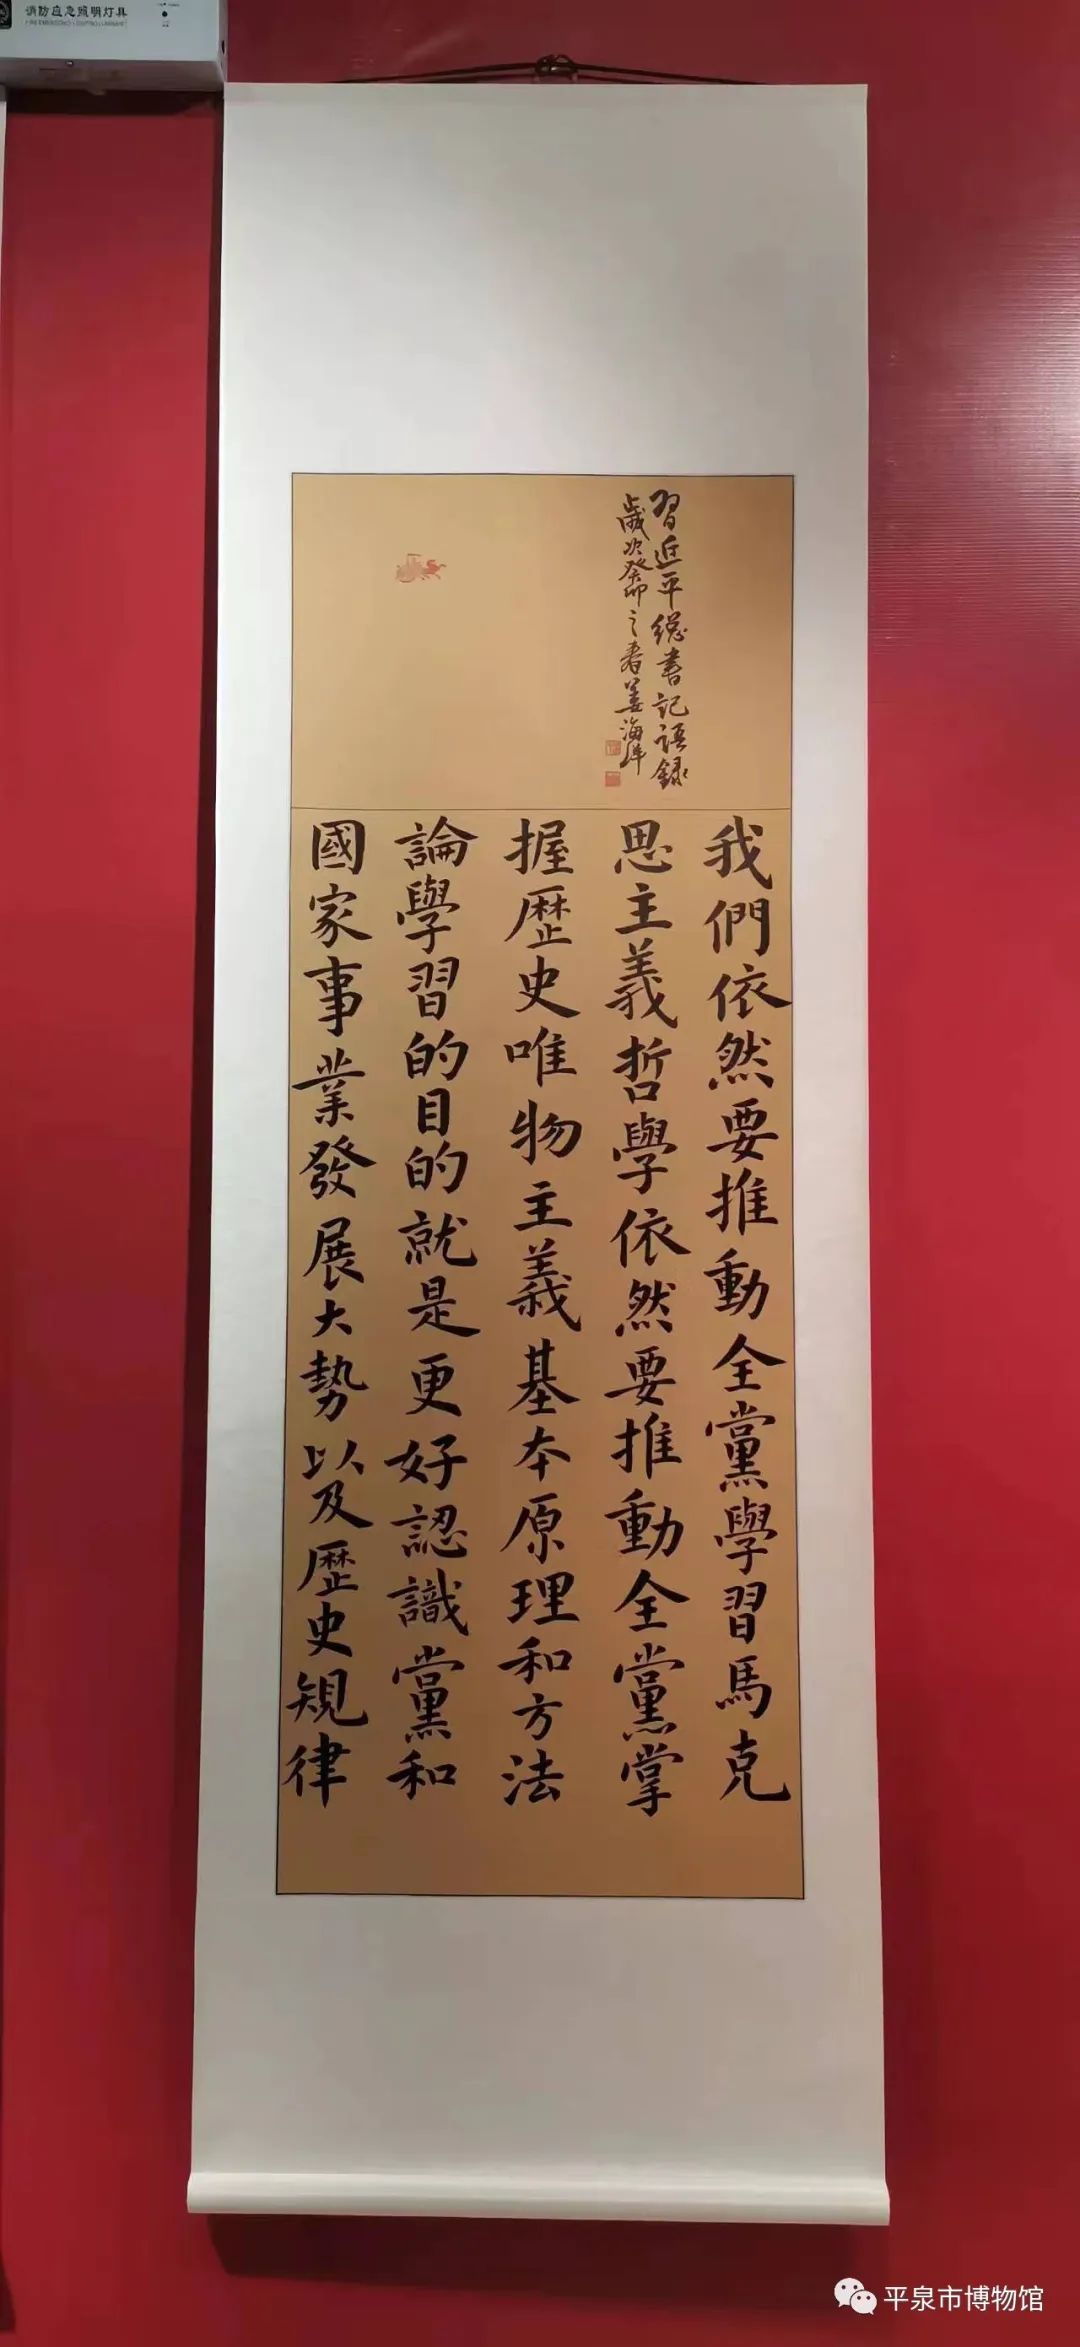 消防应急照明灯具
習近平總書記語録
歲次癸卯之春姜海洋
我們依然要推動全黨學習馬克
思主義哲學依然要推動全黨掌
握歷史唯物主義基本原理和方法
論學習的目的就是更好認識黨和
國家事業發展大勢以及歷史規律
平泉市博物馆